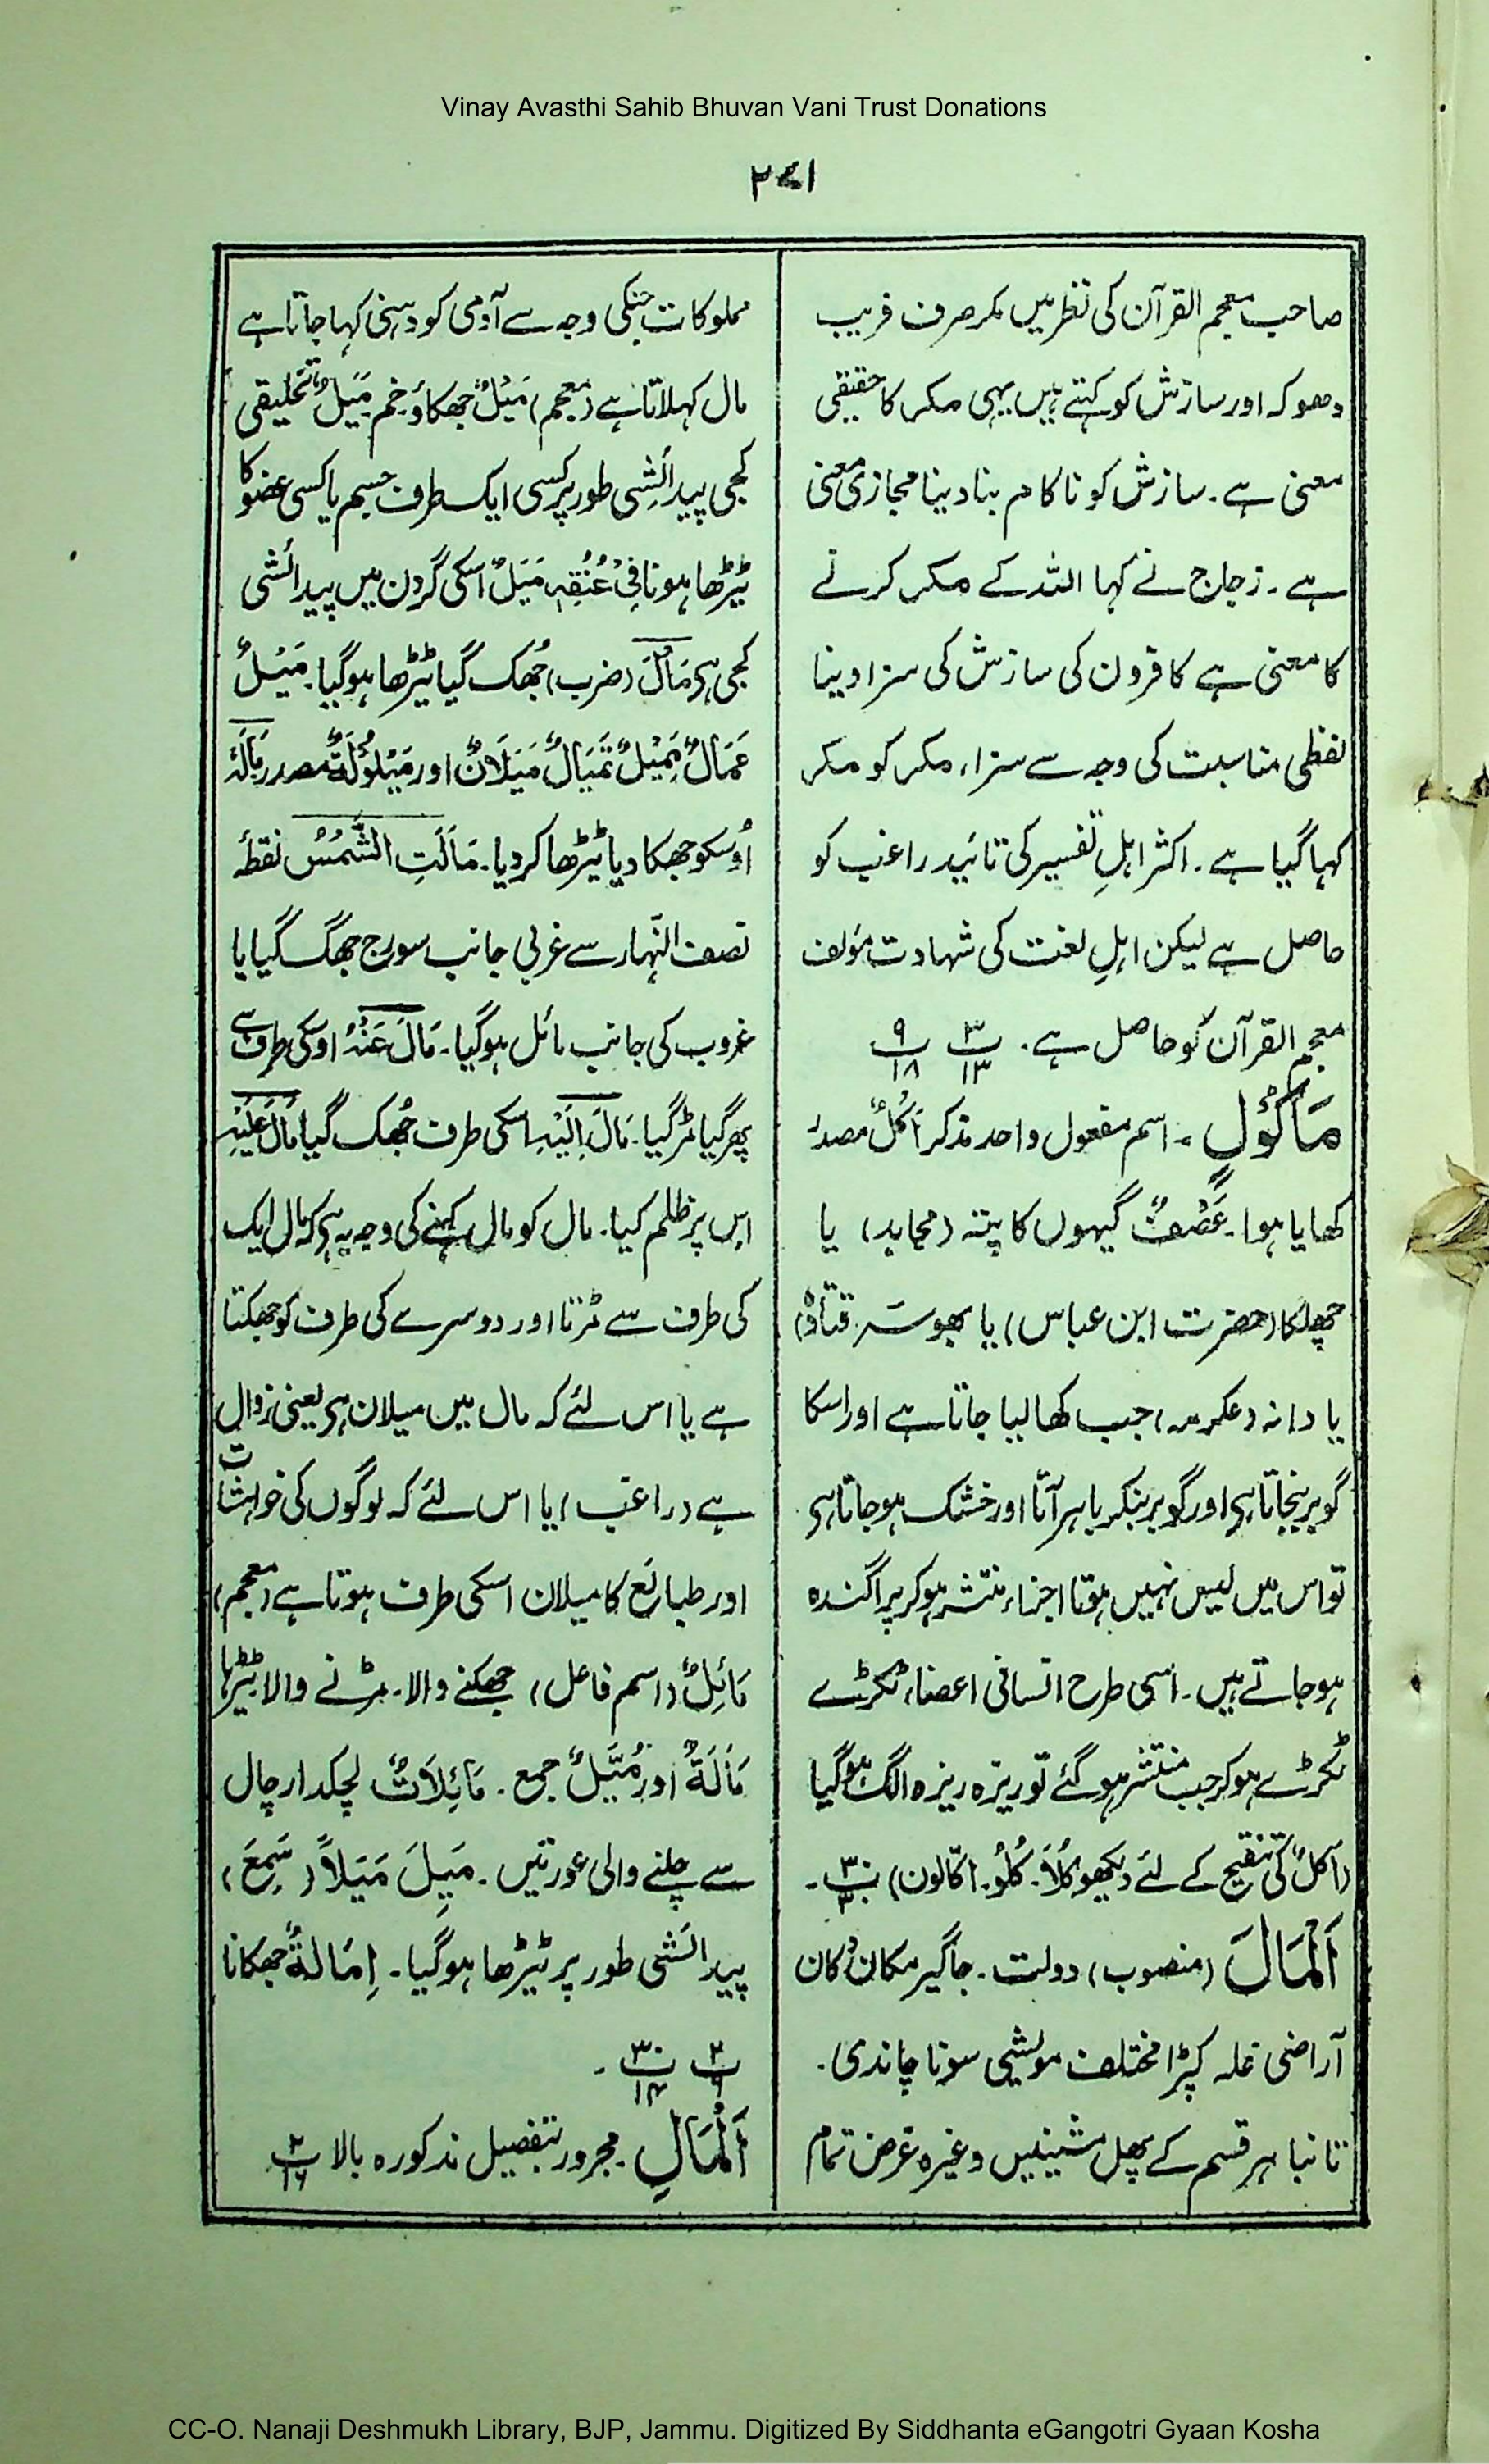 Vinay Avasthi Sahib Bhuvan Vani Trust Donations
۲۷۱
صاحب معجم القرآن کی نظر میں مکر صرف فریب
دھوکہ اور سازش کو کہتے ہیں یہی مکر کا حقیقی
معنی ہے۔ سازش کو ناکام بنا دینا مجازی معنی
ہے۔ زجاج نے کہا اللہ کے مکر کرنے
کا معنی ہے کافروں کی سازش کی سزا دینا
لفظی مناسبت کی وجہ سے سزاء مکر کو مکر
کہا گیا ہے۔ اکثر اہلِ تفسیر کی تائید راغب کو
حاصل ہے لیکن اہلِ لغت کی شہادت مؤلف
معجم القرآن کو حاصل ہے۔ ۳/۱۳ ۹/۱۸
مَأْکُوْلٍ ۔ اسم مفعول واحد مذکر اَکْلٌ مصدر
کھایا ہوا۔ عَصْفٌ گیہوں کا پتہ (مجاہد) یا
چھلکا (حضرت ابن عباس) یا بھوسہ (قتادہ)
یا دانہ (عکرمہ) جب کھالیا جاتا ہے اور اسکا
گوبر بنجاتا ہی اور گوبر بنکر باہر آتا اور خشک ہو جاتا ہی
تو اس میں لیس نہیں ہوتا اجزاء منتشر ہو کر پراگندہ
ہو جاتے ہیں۔ اسی طرح انسانی اعضاء ٹکڑے
ٹکڑے ہو کر جب منتشر ہو گئے تو ریزہ ریزہ الگ ہو گیا
(اَکْلٌ کی تنقیح کے لئے دیکھو کُلَا۔ کُلُوْ۔ اکّالون) ۳۰/۳۰۔
اَلْمَالَ (منصوب) دولت۔ جاگیر مکان دکان
آراضی غلہ کپڑا مختلف مویشی سونا چاندی۔
تانبا ہر قسم کے پھل مشینیں وغیرہ غرض تمام
مملوکات جنکی وجہ سے آدمی کو دہنی کہا جاتا ہے
مال کہلاتا ہے (معجم) مَیْلٌ جھکاؤ خم مَیَلٌ تخلیقی
کجی پیدائشی طور پر کسی ایک طرف جسم یا کسی عضو کا
ٹیڑھا ہونا فِیْ عُنُقِہٖ مَیَلٌ اسکی گردن میں پیدائشی
کجی ہی مَالَ (ضرب) جُھک گیا ٹیڑھا ہو گیا۔ مَیْلٌ
مَمَالٌ مَمِیْلٌ تَمْیَالٌ مَیَلَانٌ اور مَیْلُوْلَۃٌ مصدر مَالَہٗ
اُوسکو جھکا دیا ٹیڑھا کر دیا۔ مَالَتِ الشَّمْسُ نقطہٴ
نصف النّہار سے غربی جانب سورج جھگ گیا یا
غروب کی جانب مائل ہو گیا۔ مَالَ عَنْہُ اوسکی طرف سے
پھر گیا مُڑ گیا۔ مَالَ اِلَیْہِ اسکی طرف جُھک گیا مَالَ عَلَیْہِ
اس پر ظلم کیا۔ مال کو مال کہنے کی وجہ یہ ہی کہ مال ایک
کی طرف سے مُڑتا اور دوسرے کی طرف کو جھکتا
ہے یا اس لئے کہ مال میں میلان ہی یعنی زوال
ہے (راغب) یا اس لئے کہ لوگوں کی خواہشات
اور طبائع کا میلان اسکی طرف ہوتا ہے (معجم)
مَائِلٌ (اسم فاعل) جھکنے والا۔ مڑنے والا ٹیڑھا
مَالَۃٌ اور مُیَّلٌ جمع۔ مَائِلَاتٌ لچکدار چال
سے چلنے والی عورتیں۔ مَیِلَ مَیَلاً (سَمِعَ)
پیدائشی طور پر ٹیڑھا ہو گیا۔ اِمَالَۃٌ جھکانا
۲/۶ ۳۰/۱۴ ۔
اَلْمَالِ مجرور بتفصیل مذکورہ بالا ۲/۱۶
CC-O. Nanaji Deshmukh Library, BJP, Jammu. Digitized By Siddhanta eGangotri Gyaan Kosha